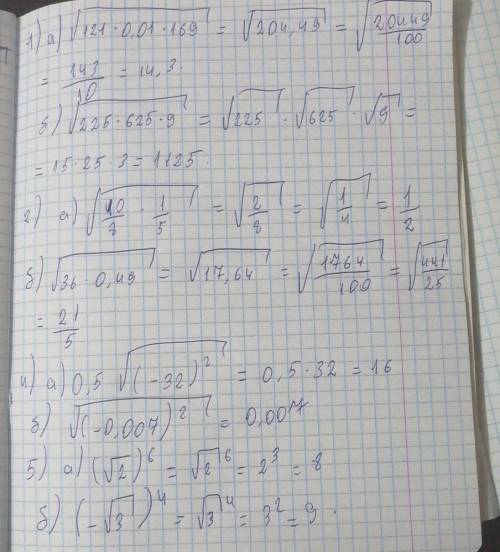 1) а) √(121 · 0,01 · 169) = √(204,49) = √(20449/100)
= 143/10 = 14,3.
б) √(225 · 625 · 9) = √225 · √625 · √9 =
= 15 · 25 · 3 = 1125.
2) а) √(10/8 · 1/5) = √(2/8) = √(1/4) = 1/2
б) √(36 · 0,49) = √(17,64) = √(1764/100) = √(441/25)
= 21/5
4) а) 0,5 √((-32)²) = 0,5 · 32 = 16
б) √((-0,007)²) = 0,007
5) а) (√2)⁶ = √2⁶ = 2³ = 8
б) (-√3)⁴ = √3⁴ = 3² = 9.